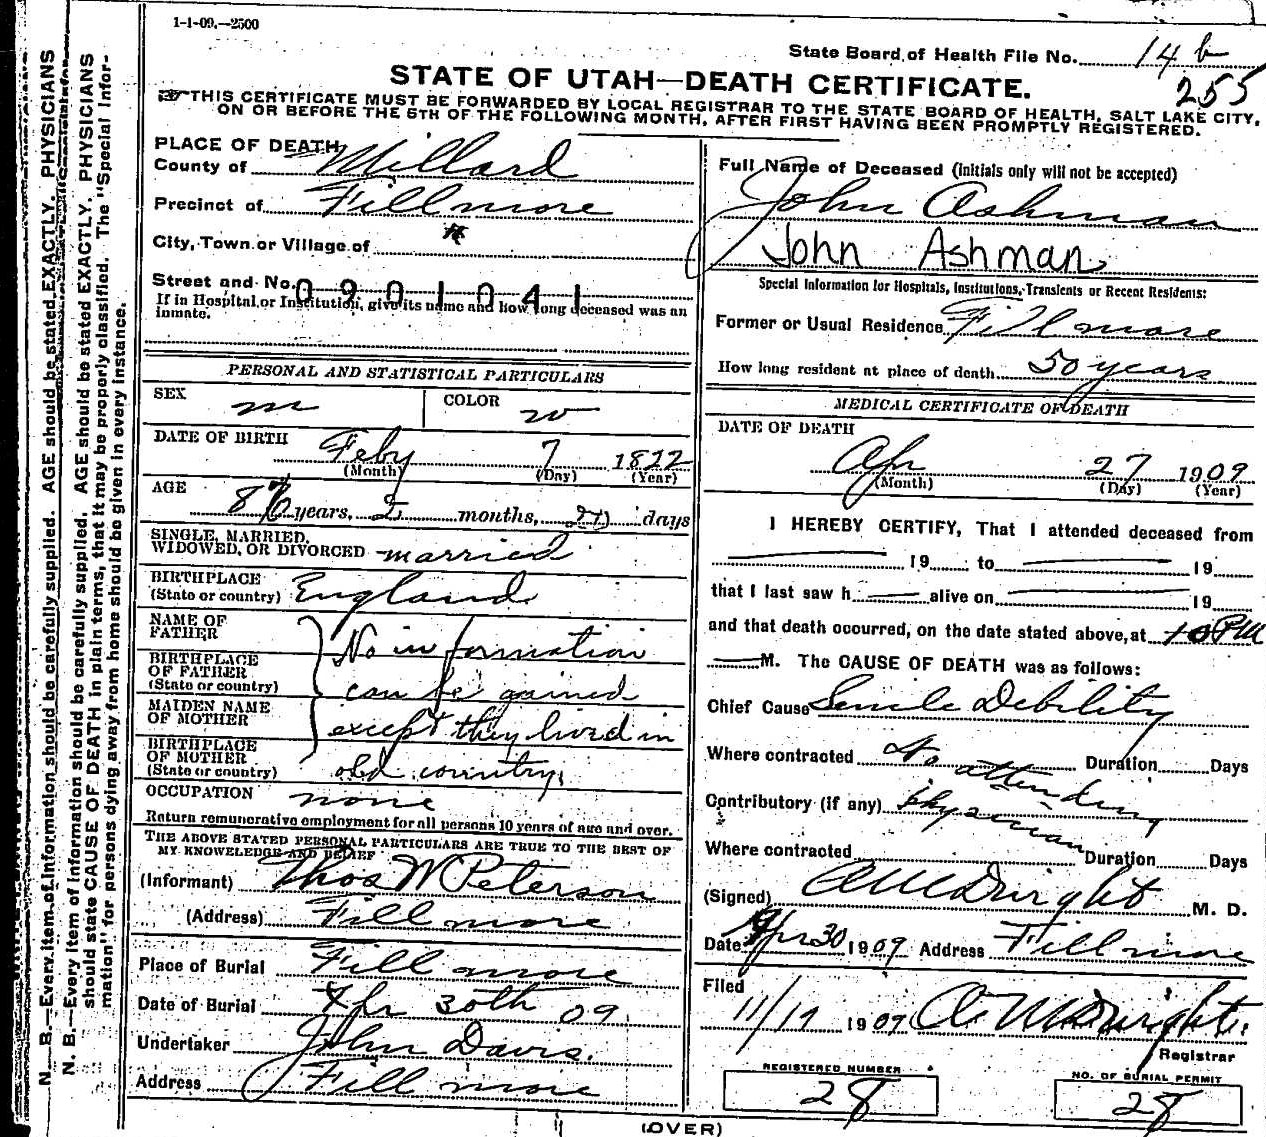 1-1-09.—2500
State Board of Health File No. 14 b
255
STATE OF UTAH—DEATH CERTIFICATE.
THIS CERTIFICATE MUST BE FORWARDED BY LOCAL REGISTRAR TO THE STATE BOARD OF HEALTH, SALT LAKE CITY,
ON OR BEFORE THE 5TH OF THE FOLLOWING MONTH, AFTER FIRST HAVING BEEN PROMPTLY REGISTERED.
PLACE OF DEATH
County of Millard
Precinct of Fillmore
City, Town or Village of "
Street and No. 0901041
If in Hospital or Institution, give its name and how long deceased was an
inmate.
PERSONAL AND STATISTICAL PARTICULARS
SEX m COLOR w
DATE OF BIRTH Feby 7 1822
(Month) (Day) (Year)
AGE 87 years, 2 months, days
SINGLE, MARRIED,
WIDOWED, OR DIVORCED married
BIRTHPLACE
(State or country) England
NAME OF
FATHER No information
BIRTHPLACE
OF FATHER
(State or country) can be gained
MAIDEN NAME
OF MOTHER except they lived in
BIRTHPLACE
OF MOTHER
(State or country) old country.
OCCUPATION none
Return remunerative employment for all persons 10 years of age and over.
THE ABOVE STATED PERSONAL PARTICULARS ARE TRUE TO THE BEST OF
MY KNOWLEDGE AND BELIEF
(Informant) Thos W Peterson
(Address) Fillmore
Place of Burial Fillmore
Date of Burial Apr 30th 09
Undertaker John Davis.
Address Fillmore
Full Name of Deceased (initials only will not be accepted)
John Ashman
John Ashman
Special Information for Hospitals, Institutions, Transients or Recent Residents:
Former or Usual Residence Fillmore
How long resident at place of death 50 years
MEDICAL CERTIFICATE OF DEATH
DATE OF DEATH
Apr 27 1909
(Month) (Day) (Year)
I HEREBY CERTIFY, That I attended deceased from
19 to 19
that I last saw h alive on 19
and that death occurred, on the date stated above, at 10 PM
M. The CAUSE OF DEATH was as follows:
Chief Cause Senile Debility
Where contracted No attending Duration Days
Contributory (if any) physician
Where contracted Duration Days
(Signed) M. D.
Date Apr 30 1909 Address Fillmore
Filed
11/17 1909
Registrar
REGISTERED NUMBER
28
NO. OF BURIAL PERMIT
28
(OVER)
N. B.—Every item of information should be carefully supplied. AGE should be stated EXACTLY. PHYSICIANS
N. B.—Every item of information should be carefully supplied. AGE should be stated EXACTLY. PHYSICIANS
should state CAUSE OF DEATH in plain terms, that it may be properly classified. The "Special Infor-
mation" for persons dying away from home should be given in every instance.